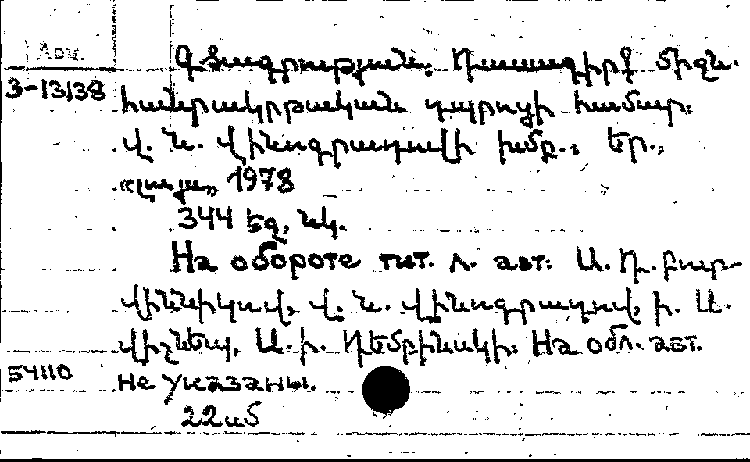 Arm.
Գծագրություն. Դասագիրք միջն.
3-13138
հանրակրթական դպրոցի համար.
Վ. Ն. Վինոգրադովի խմբ.: Եր.,
«Լույս» 1978
344 էջ, նկ.
На обороте тит. л. авт: Ա. Դ. Բոտ-
վիննիկով, Վ. Ն. Վինոգրադով, Ի. Ս.
Վիշնեպ, Ս. Ի. Դեմբինսկի. На обл. авт.
54110
не указаны.
22